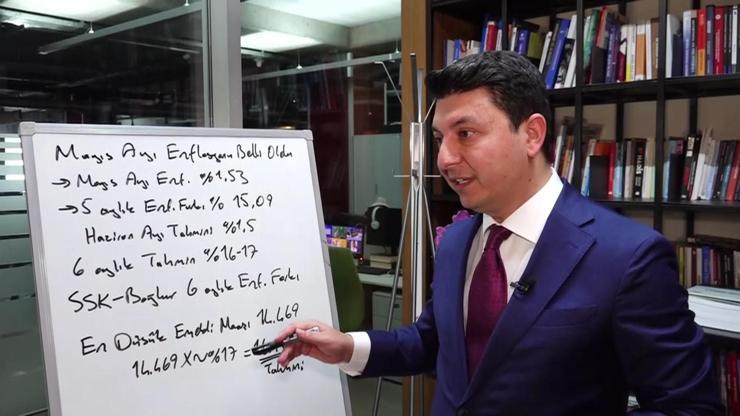 Mayıs Ayı Enflasyon Belli Oldu
→ Mayıs Ayı Enf. %1,53
→ 5 aylık Enf. Farkı % 15,09
Haziran Ayı Tahmini %1,5
6 aylık Tahmin %16-17
SSK-Bağkur 6 aylık Enf. Farkı
En Düşük Emekli Maaşı 14.469
14.469 X %17 =
Tahmini